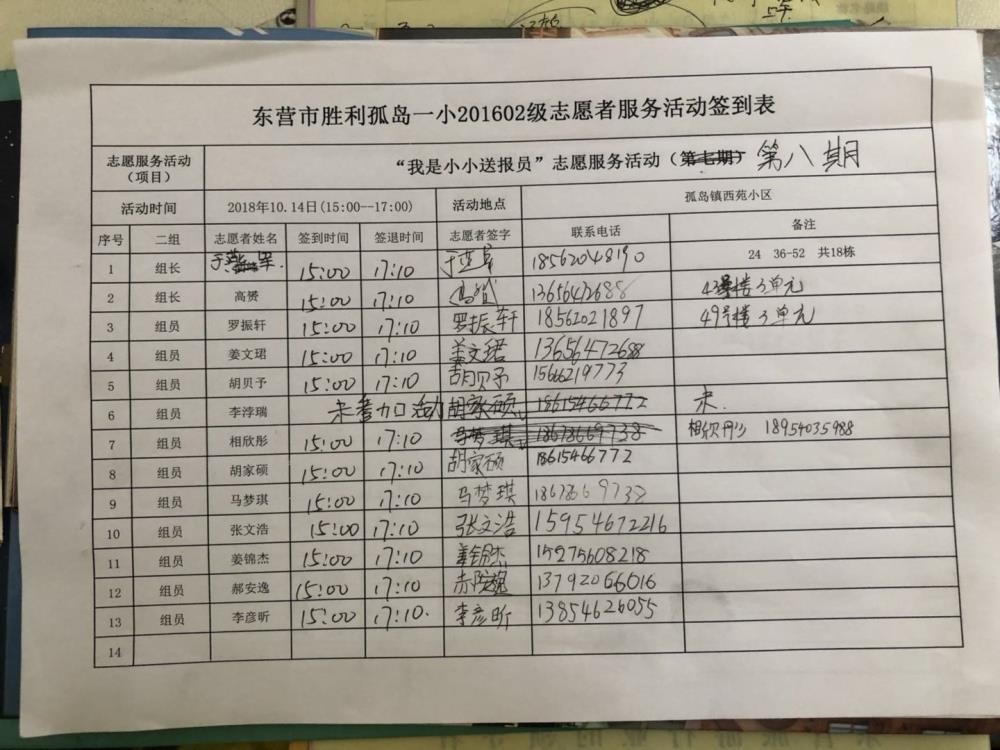 东营市胜利孤岛一小201602级志愿者服务活动签到表
志愿服务活动（项目） “我是小小送报员”志愿服务活动（第七期）第八期
活动时间 2018年10.14日(15:00--17:00) 活动地点 孤岛镇西苑小区
序号 二组 志愿者姓名 签到时间 签退时间 志愿者签字 联系电话 备注
1 组长 于 军. 15:00 17:10 18562048190 24 36-52 共18栋
2 组长 高赟 15:00 17:10 高赟 13656472688 43号楼3单元
3 组员 罗振轩 15:00 17:10 罗振轩 18562021897 49号楼3单元
4 组员 姜文珺 15:00 17:10 姜文珺 13656472688
5 组员 胡贝予 15:00 17:10 胡贝予 15666219773
6 组员 李浡瑞 未参加活动 胡家硕 18615466772 未.
7 组员 相欣彤 15:00 17:10 马梦琪 18678669738 相欣彤 18954035988
8 组员 胡家硕 15:00 17:10 胡家硕 18615466772
9 组员 马梦琪 15:00 17:10 马梦琪 18678669738
10 组员 张文浩 15:00 17:10 张文浩 15954672216
11 组员 姜锦杰 15:00 17:10 姜锦杰 15275608218
12 组员 郝安逸 15:00 17:10 13792066616
13 组员 李彦昕 15:00 17:10. 李彦昕 13854626055
14